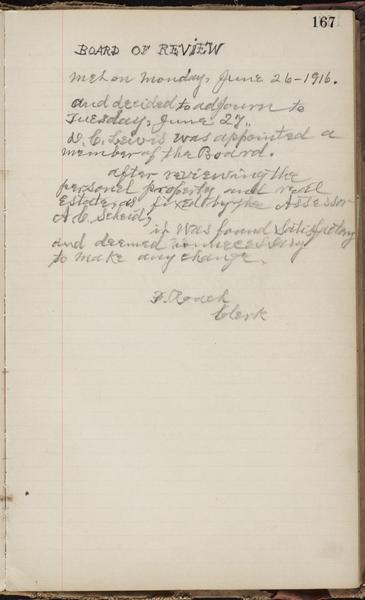 167
BOARD OF REVIEW
met on Monday, June 26-1916.
and decided to adjourn to
Tuesday, June 27.
D. C. Lewis was appointed a
member of the Board.
after reviewing the
personel property and real
Estate as fixed by the Assessor
A. C. Scheid,
it was found satisfactory
and deemed unnecessary
to make any change.
F. Roach
Clerk